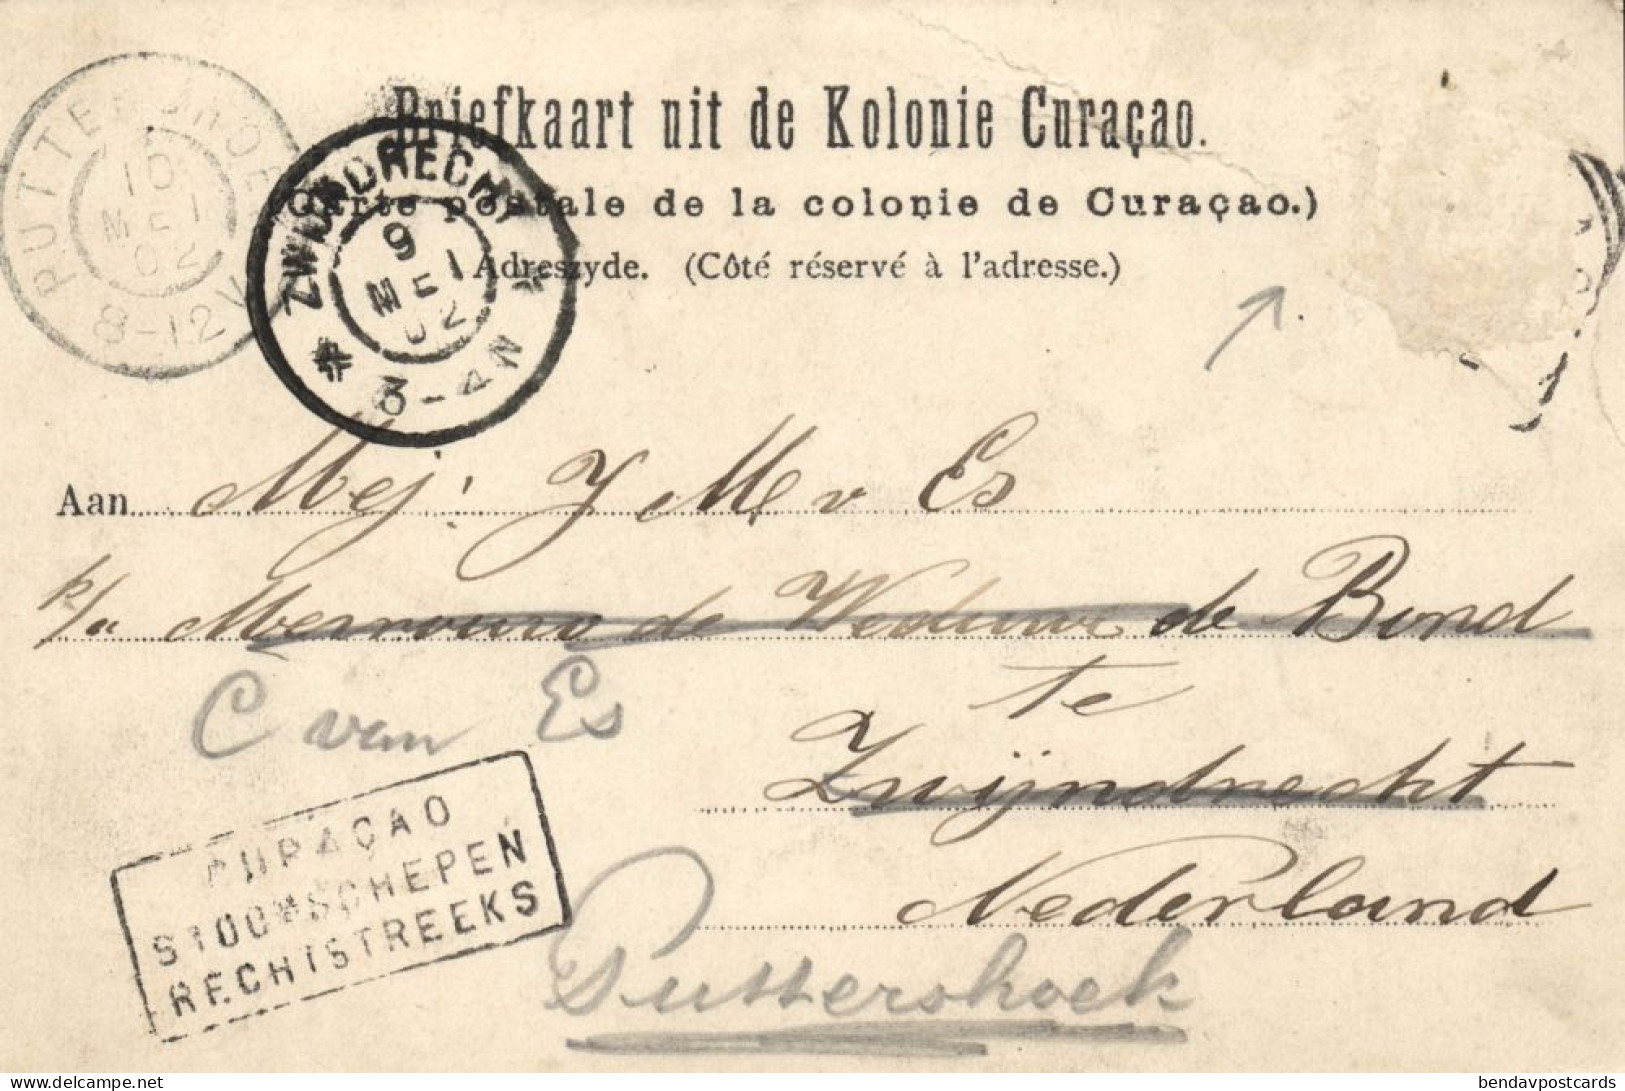 Briefkaart uit de Kolonie Curaçao.
(Carte postale de la colonie de Curaçao.)
Adreszyde. (Côté réservé à l'adresse.)
PUTTERSHOEK
10
MEI
02
8-12V
ZWIJNDRECHT
9
MEI
02
3-4N
Aan Mej: J M v Es
p/a Mevrouw de Weduwe de Bond
te
C van Es
Zwijndrecht
Nederland
CURAÇAO
STOOMSCHEPEN
RECHTSTREEKS
Puttershoek
delcampe.net
bendavpostcards